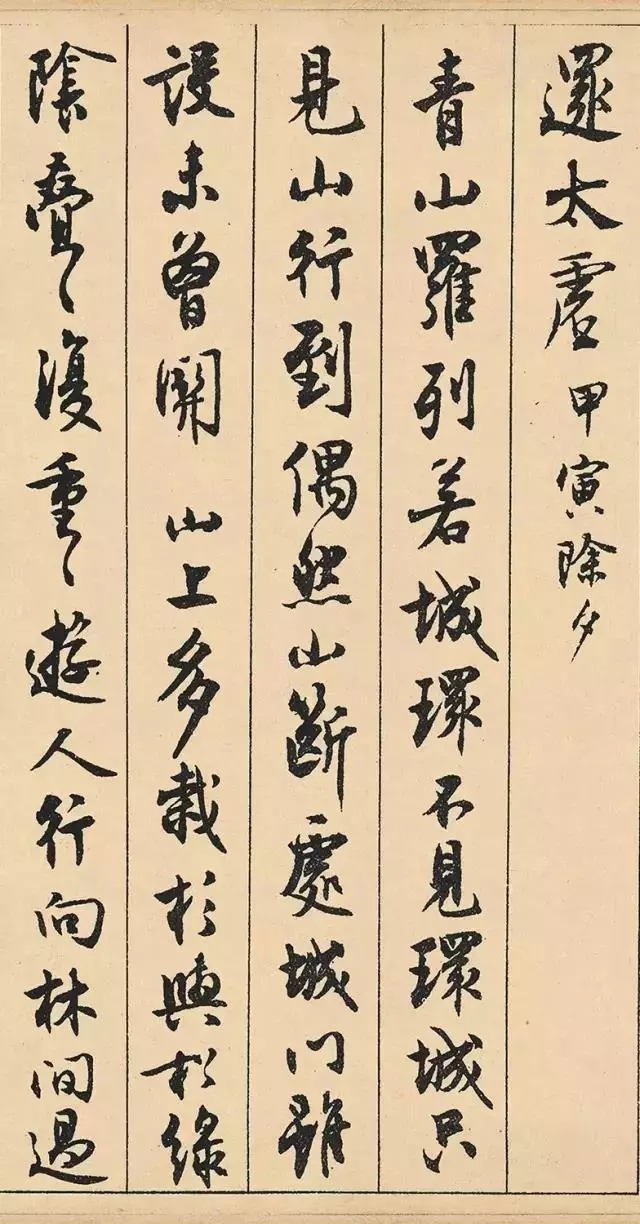 還太虛 甲寅除夕
青山羅列若城環不見環城只
見山行到偶然山斷處城門雖
設未曾關 山上多栽杉與松綠
陰疊〻復重〻遊人行向林間過